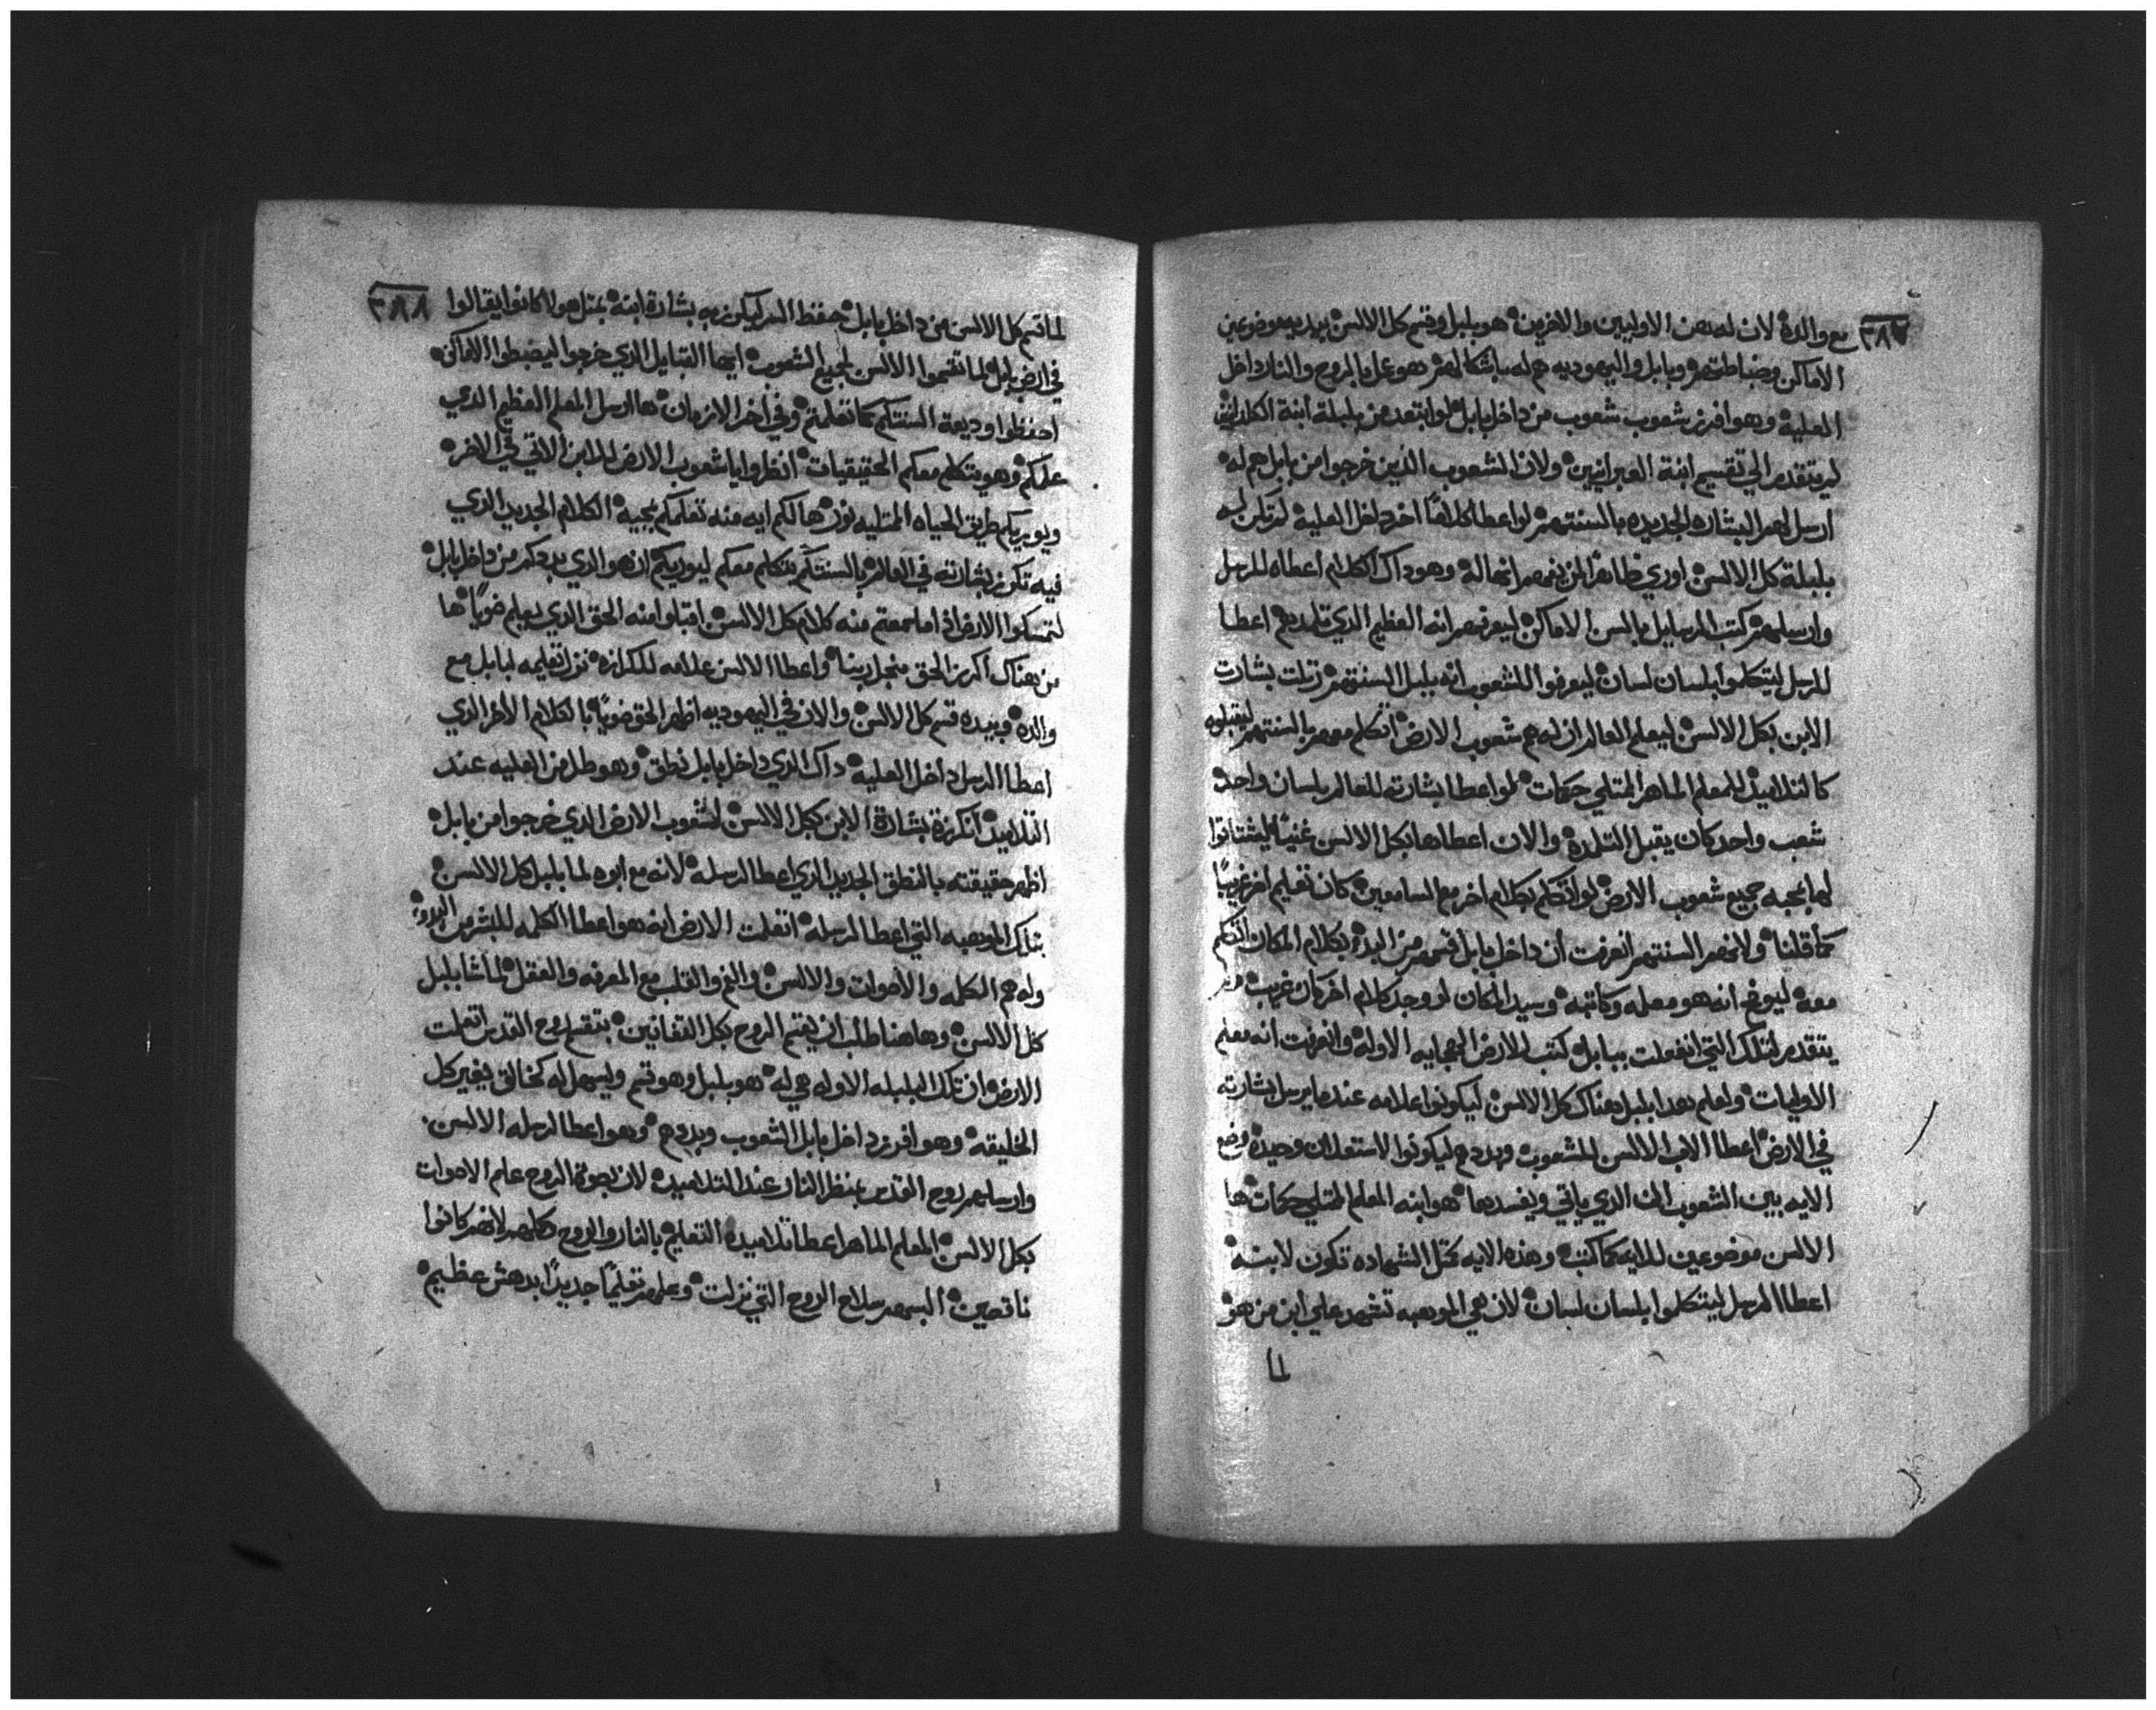 ٣٨٧
مع والده لان له هن الاوليين والاخرين هو بلبل وقسم كل الالسن بيديه موضوعين
الاماكن وضباطتهم وبابل واليهوديه هم له باشكالهم هو عمل بالروح والنار داخل
العليه وهو افرز شعوب شعوب من داخل بابل لو ابتعد من بلبلة ابنة الكلدانيين
لم يتقدم الي تقسيم ابنة العبرانيين ولان الشعوب الذين خرجوا من بابل هم له
ارسل لهم البشاره الجديده بالسنتهم لو اعطا كلاما اخر داخل العليه لم تكن له
بلبلة كل الالسن اوري ظاهرا انهم له وهو داك الكلام اعطاه للرسل
وارسلهم كتب الرسايل بالسن الاماكن ليعرفهم انه العظيم الذي تلمدهم اعطا
للرسل ليتكلموا بلسان لسان ليعرفوا الشعوب انه بلبل السنتهم نزلت بشارت
الابن بكل الالسن ليعلم العالم ان له هم شعوب الارض اتكلم معهم بالسنتهم ليقبلوه
كالتلاميذ للمعلم الماهر الممتلي حكمات لو اعطا بشارته للعالم بلسان واحد
شعب واحد كان يقبل التلمده والان اعطاها بكل الالسن غنيا ليشتاقوا
لها بمحبه جميع شعوب الارض لو اتكلم بكلام اخر مع السامعين كان تعليم اخر غريبا
كما قلنا ولانهم السنتهم انعرفت ان داخل بابل قسمهم من البدء بكلام المكان اتكلم
معه ليوضح انه هو معلمه وكاتبه وسيد المكان لو وجد كلام اخر كان غريب
يتقدم لتلك التي انفعلت ببابل كتب للارض الهجايه الاوله وانعرفت انه معلم
الاوليات ولعلم هدا بلبل هناك كل الالسن ليكونوا علامه عندما يرسل بشارته
في الارض اعطا الاب الالسن للشعوب وبددهم ليكونوا لاستعلان وحيده وضع
الايه بين الشعوب الذي ياتي ويفسدها هو ابنه المعلم الممتلي حكمات ها
الالسن موضوعين للايه كما كتب وهذه الايه كمثل الشهاده تكون لابنه
اعطا الرسل ليتكلموا بلسان لسان لان هي الموهبه تشهد علي ابن من هو
لما
٣٨٨
لما قسم كل الالسن من داخل بابل حفظ السر ليكرز به بشارة ابنه بمثل هولا كانوا يقالوا
في ارض بابل لما تقسموا الالسن لجميع الشعوب ايها القبايل الذي خرجوا ليضبطوا الاماكن
احفظوا وديعة السنتكم كما تعلمتم وفي اخر الازمان ها ارسل المعلم العظيم الذي
علمكم وهو يتكلم معكم الحقيقيات انظروا يا شعوب الارض للابن الاتي في الاخر
ويوريكم طريق الحياه الممتليه نور ها لكم ايه منه تعلمكم بمجيه الكلام الجديد الذي
فيه تكرز بشارته في العالم بالسنتكم يتكلم معكم ليوريكم ان هو الذي بددكم من داخل بابل
لتمسكوا الارض اذا ما سمعتم منه كلام كل الالسن اقبلوا منه الحق الذي يعلم ضويا ها
من هناك اكرز الحق بنجل ربنا واعطا الالسن علامه للكرازه نزل تعليمه لبابل مع
والده وبيده قسم كل الالسن والان في اليهوديه اظهر الحق ضويا بالكلام الاخر الذي
اعطا الرسل داخل العليه داك الذي داخل بابل نطق وهو طل من العليه عند
التلاميذ انكرزة بشارة الابن بكل الالسن لشعوب الارض الذي خرجوا من بابل
اظهر حقيقته بالنطق الجديد الذي اعطا لرسله لانه مع ابوه لما بلبل كل الالسن
بتلك الموهبه التي اعطا لرسله اتعلمت الارض انه هو اعطا الكلمه للبشر من البدء
وله هم الكلمه والاصوات والالسن والفم والقلب مع المعرفه والعقل لما شا بلبل
كل الالسن وهاهنا طلب ان يقسم الروح بكل القفانين بتقسم روح القدس اتعلمت
الارض ان تلك البلبله الاوله هي له هو بلبل وهو قسم ويسهل له كخالق يغير كل
الخليقه وهو افرز داخل بابل الشعوب وبددهم وهو اعطا لرسله الالسن
وارسل لهم روح القدس بمنظر النار عند التلاميذه لان بقوة الروح علم الاصوات
بكل الالسن المعلم الماهر اعطا تلاميذه التعليم بالنار والروح كلهم لانهم كانوا
ناقصين البسهم سلاح الروح التي نزلت وعلمهم تعليما جديدا بدهش عظيم